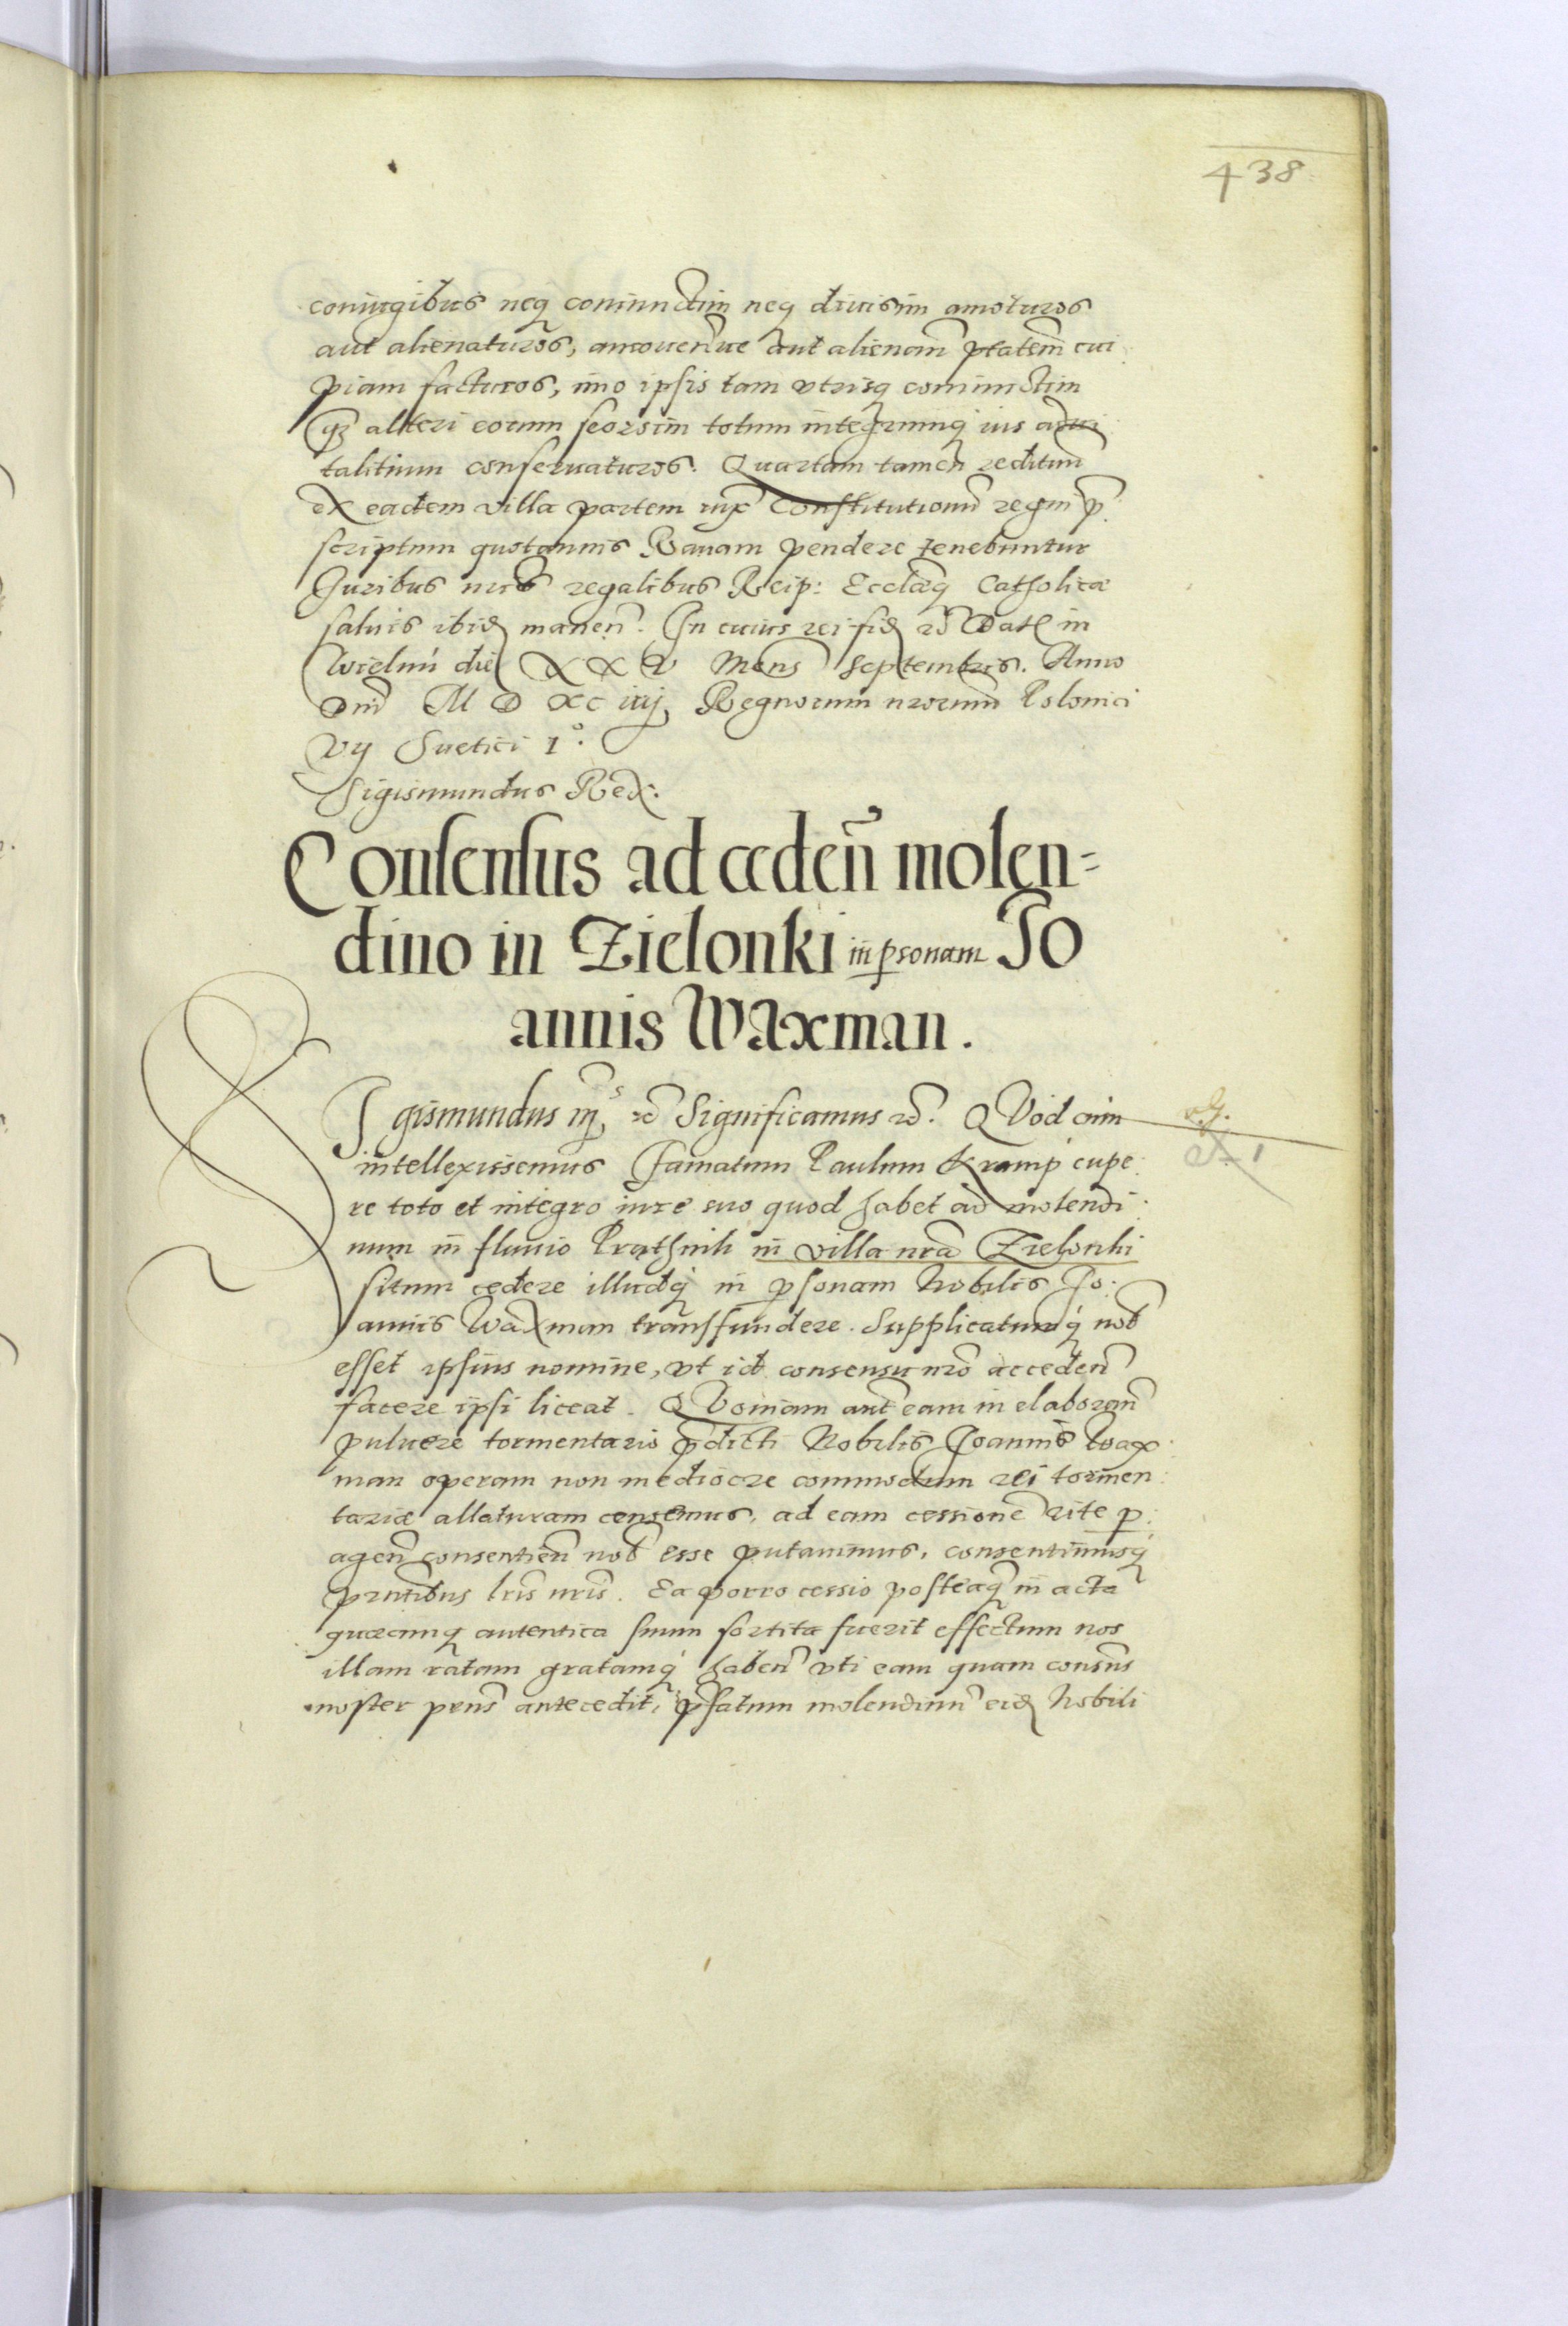 438
coniugibus neq coniunctim neq diuisim amoturos
aut alienaturos, amouendive aut alienandi ptatem cui
piam facturos, imo ipsis tam vtrisq coniunctim
qz alteri eorum seorsim totum integrumq ius advi
talitium conseruaturos. Quartam tamen redituum
ex eadem villa partem iux Constitutionū regni p
scriptum quotannis Rauam pendere tenebuntur
Juribus nris regalibus Reip: Ecclæq Catholicæ
saluis ibid manen. In cuius rei fid rc Dat in
Wielun die XXV Mens Septembris. Anno
Dni M D XC iiij, Regnorum nrorum Polonici
Vij Suetici 1º.
Sigismundus Rex.
Consensus ad ceden molen=
dino in Zielonki in psonam Jo
annis Waxman.
Sigismundus 3s rc Significamus rc. QVod cum
intellexissemus Famatum Paulum Kramp cupe
re toto et integro iure suo quod habet ad molendi
num in fluuio Prąthnik in villa nra Zielonki
situm cedere illudq in psonam Nobilis Jo
annis Waxman transfundere. Supplicatumq nob
esset ipsius nomine, vt id consensu nro acceden
facere ipsi liceat. QVoniam aut eam in elaboran
puluere tormentario pdicti Nobilis Joannis Wax
man operam non mediocre commodum rei tormen
tariæ allaturam censemus, ad eam cessionē rite p
agen consentien nob esse putauimus, consentimusq
pntibus lris nris. Ea porro cessio posteaq in acta
quæcunq autentica suum sortita fuerit effectum nos
illam ratam gratamq haben vti eam quam consens
noster prns antecedit, pfatum molendinū eid Nobili